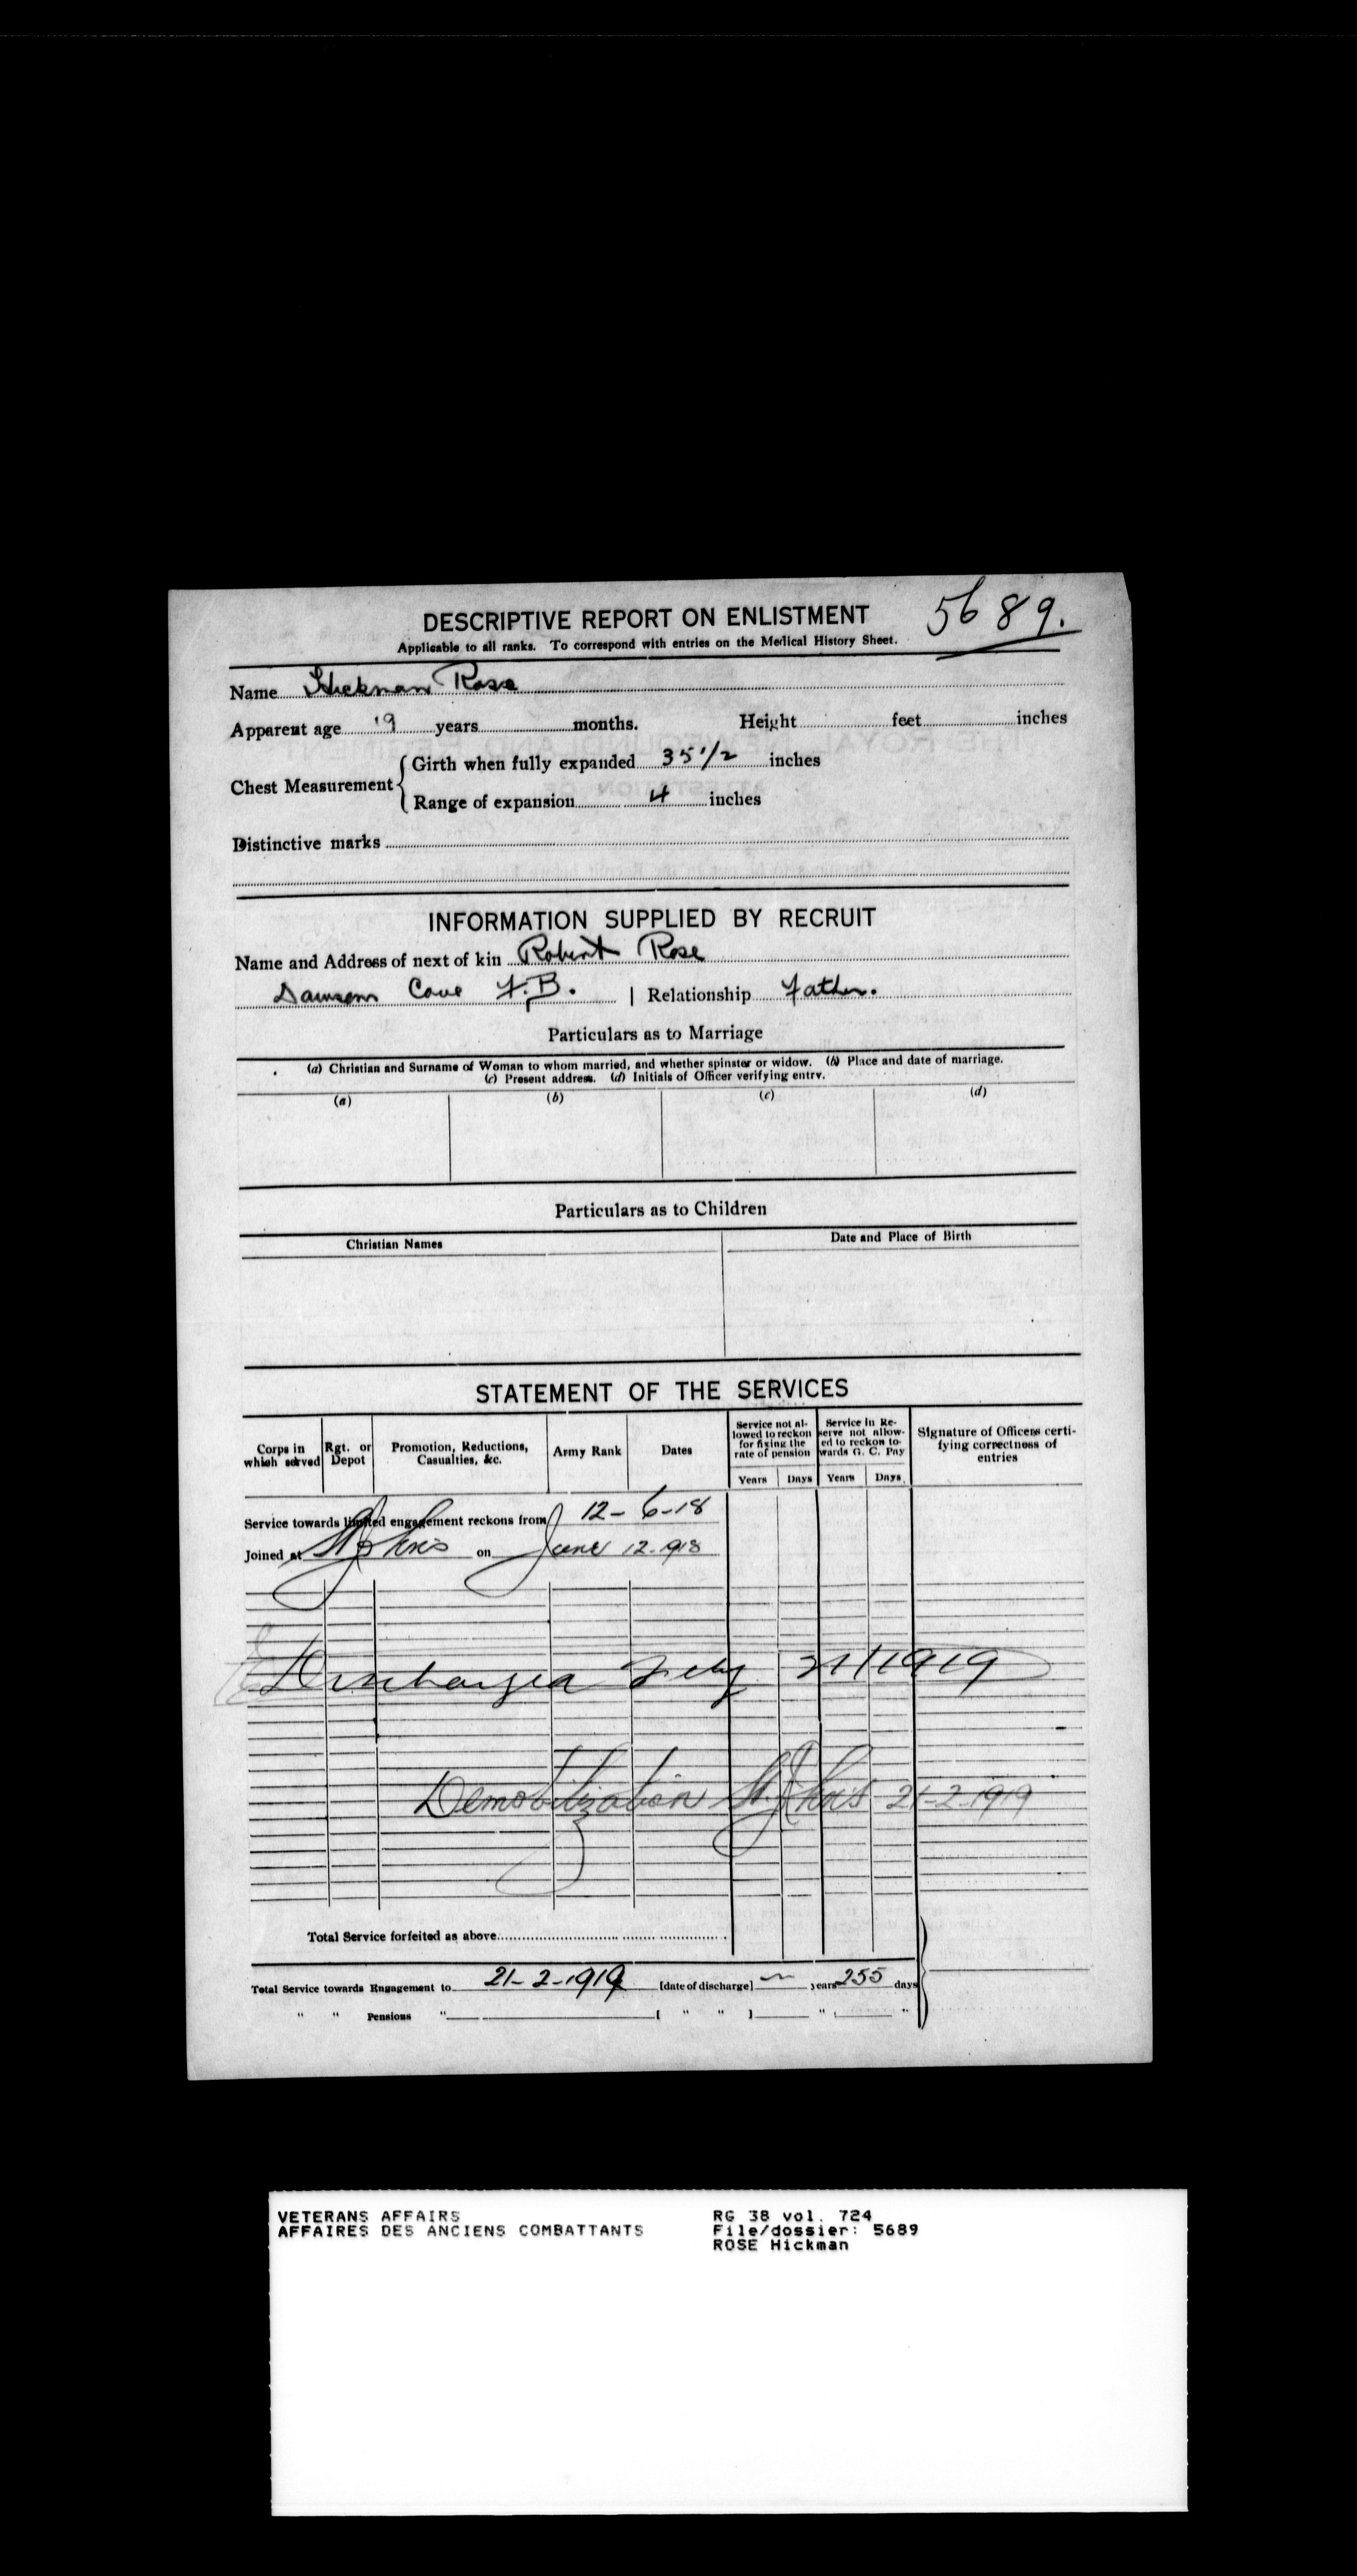 DESCRIPTIVE REPORT ON ENLISTMENT
5689.
Applicable to all ranks. To correspond with entries on the Medical History Sheet.
Name Hickman Rose
Apparent age 19 years months. Height feet inches
Chest Measurement { Girth when fully expanded 35 1/2 inches
Range of expansion 4 inches
Distinctive marks
INFORMATION SUPPLIED BY RECRUIT
Name and Address of next of kin Robert Rose
Cove F.B. | Relationship Father.
Particulars as to Marriage
(a) Christian and Surname of Woman to whom married, and whether spinster or widow. (b) Place and date of marriage.
(c) Present address. (d) Initials of Officer verifying entry.
(a) (b) (c) (d)
Particulars as to Children
Christian Names Date and Place of Birth
STATEMENT OF THE SERVICES
Corps in which served
Rgt. or Depot
Promotion, Reductions, Casualties, &c.
Army Rank
Dates
Service not allowed to reckon for fixing the rate of pension
Service in Reserve not allowed to reckon towards G. C. Pay
Signature of Officers certifying correctness of entries
Years Days Years Days
Service towards limited engagement reckons from 12-6-18
Joined at St Johns on June 12-1918
Discharged Feby 21/1919
Demobilization St. Johns 21-2-1919
Total Service forfeited as above
Total Service towards Engagement to 21-2-1919 [date of discharge] — years 255 days
" " Pensions " [ " " ] " "
VETERANS AFFAIRS
AFFAIRES DES ANCIENS COMBATTANTS
RG 38 vol. 724
File/dossier: 5689
ROSE Hickman